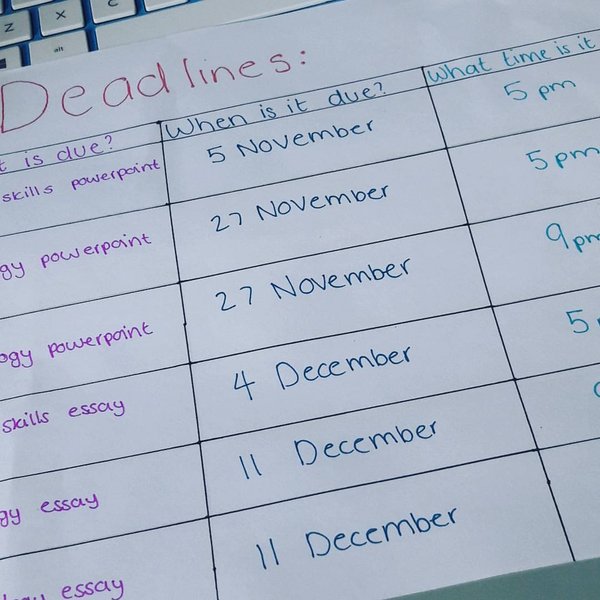 Z X C
alt
Deadlines:
is due? When is it due? What time is it
skills powerpoint 5 November 5 pm
powerpoint 27 November 5pm
powerpoint 27 November 9pm
skills essay 4 December 5
essay 11 December
essay 11 December